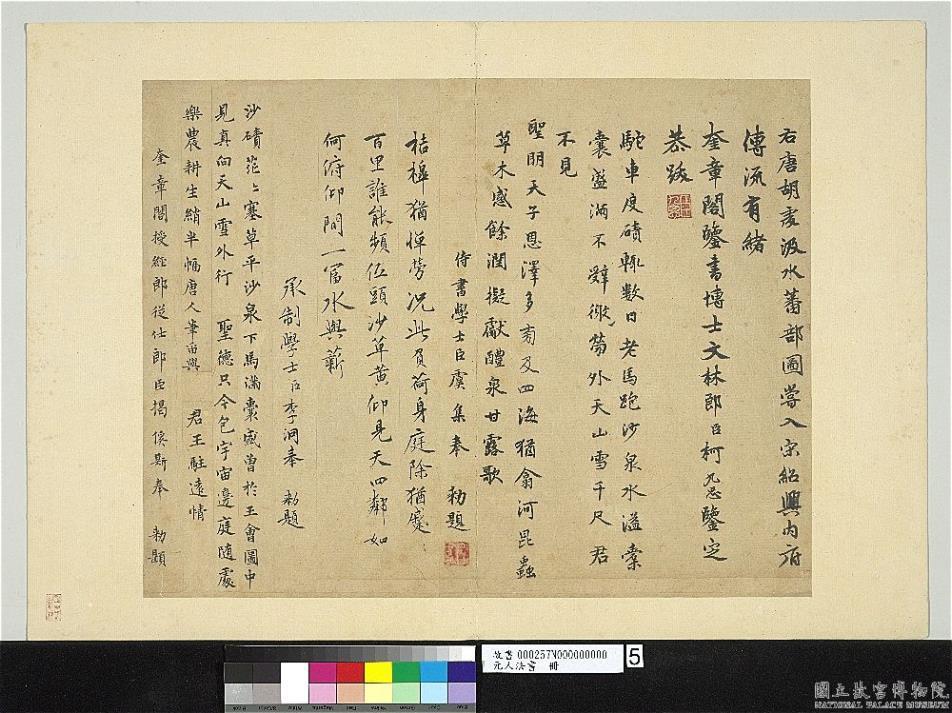 右唐胡虔汲水蕃部圖嘗入宋紹興內府
傳流有緒
奎章閣鑒書博士文林郎臣柯九思鑒定
恭跋
駝車度磧輒數日老馬跑沙泉水溢橐
囊盛滿不辭微勞外天山雪千尺君
不見
聖明天子恩澤多南及四海猶翕河昆蟲
草木感餘潤擬獻醴泉甘露歌
侍書學士臣虞集奉 敕題
桔槔猶憚勞況此負荷身庭除猶
百里誰能頻伍頭沙草黃仰見天四鄰如
何俯仰間一富水與薪
承制學士臣李泂奉 敕題
沙磧茫々塞草平沙泉下馬滿囊盛曾於王會圖中
見真向天山雪外行 聖德只今包宇宙邊庭隨處
樂農耕生綃半幅唐人筆留與 君王駐遠情
奎章閣授經郎從仕郎臣揭傒斯奉 敕題
故書000257N000000000
元人法書 冊
5
國立故宮博物院
NATIONAL PALACE MUSEUM